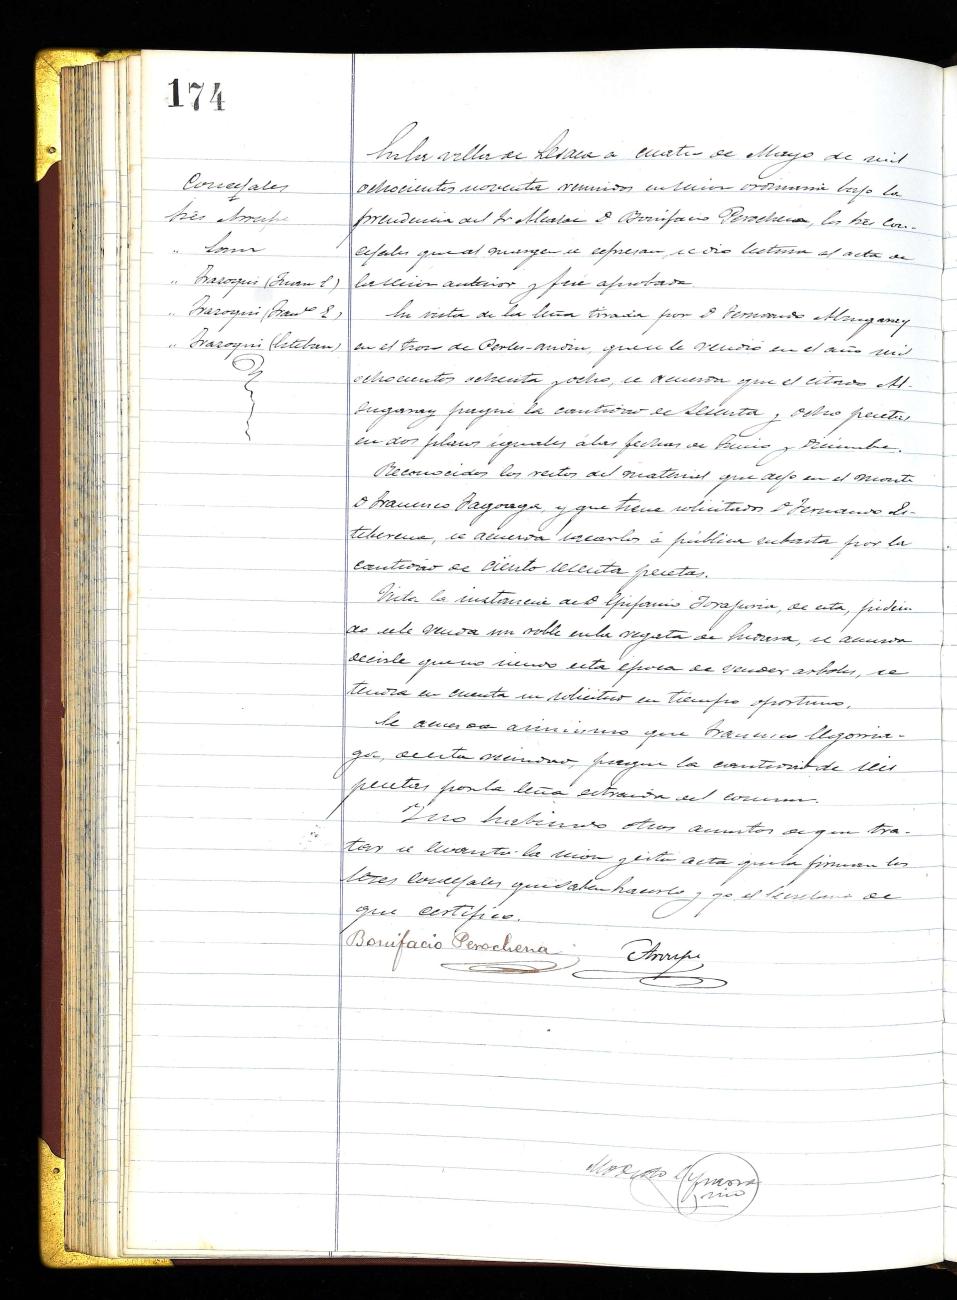 174
Concejales
Sres Arrupe
" Loma
" Irazoqui (Juan E)
" Irazoqui (Franco E)
" Irazoqui (Esteban)
En la villa de Lesaca a cuatro de Mayo de mil
ochocientos noventa reunidos en sesion ordinaria bajo la
presidencia del Sr Alcalde D Bonifacio Perochena, los Sres Con-
cejales que al margen se espresan, se dio lectura al acta de
la sesion anterior y fué aprobada
En vista de la leña tirada por D Fernando
en el trozo de que se le vendio en el año mil
ochocientos ochenta y ocho, se acuerda que el citado Al-
pague la cantidad de sesenta y ocho pesetas
en dos plazos iguales á las fechas de Junio y Diciembre.
Reconocidos los restos del material que dejo en el monte
D Francisco Fagoaga, y que tiene solicitados D Fernando
se acuerda sacarlos á pública subasta por la
cantidad de ciento sesenta pesetas.
Vista la instancia de D Epifanio de esta, pidien-
do se le venda un roble en la regata de se acuerda
decirle que no siendo esta época de vender arboles, se
tendra en cuenta su solicitud en tiempo oportuno.
Se acuerda asimismo que Francisco
de esta vecindad, pague la cantidad de seis
pesetas por la leña estraida del comun.
Y no habiendo otros asuntos de que tra-
tar se levanto la sesion y esta acta que la firman los
Sres Concejales que saben hacerlo y yo el Secretario de
que certifico.
Bonifacio Perochena Arrupe